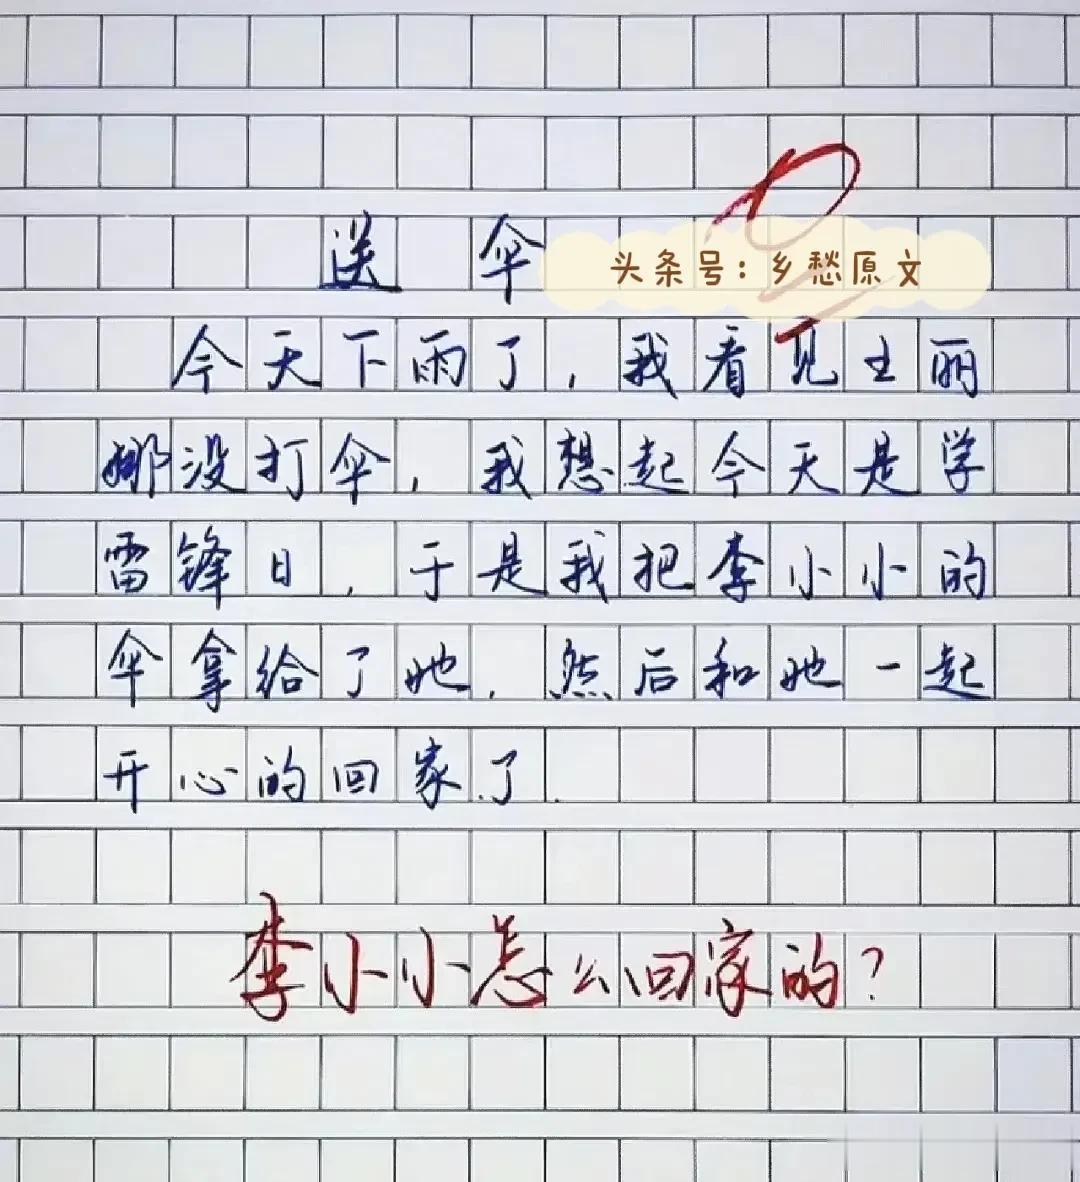 送伞
头条号:乡愁原文
今天下雨了,我看见王丽
娜没打伞,我想起今天是学
雷锋日,于是我把李小小的
伞拿给了她,然后和她一起
开心的回家了.
李小小怎么回家的?